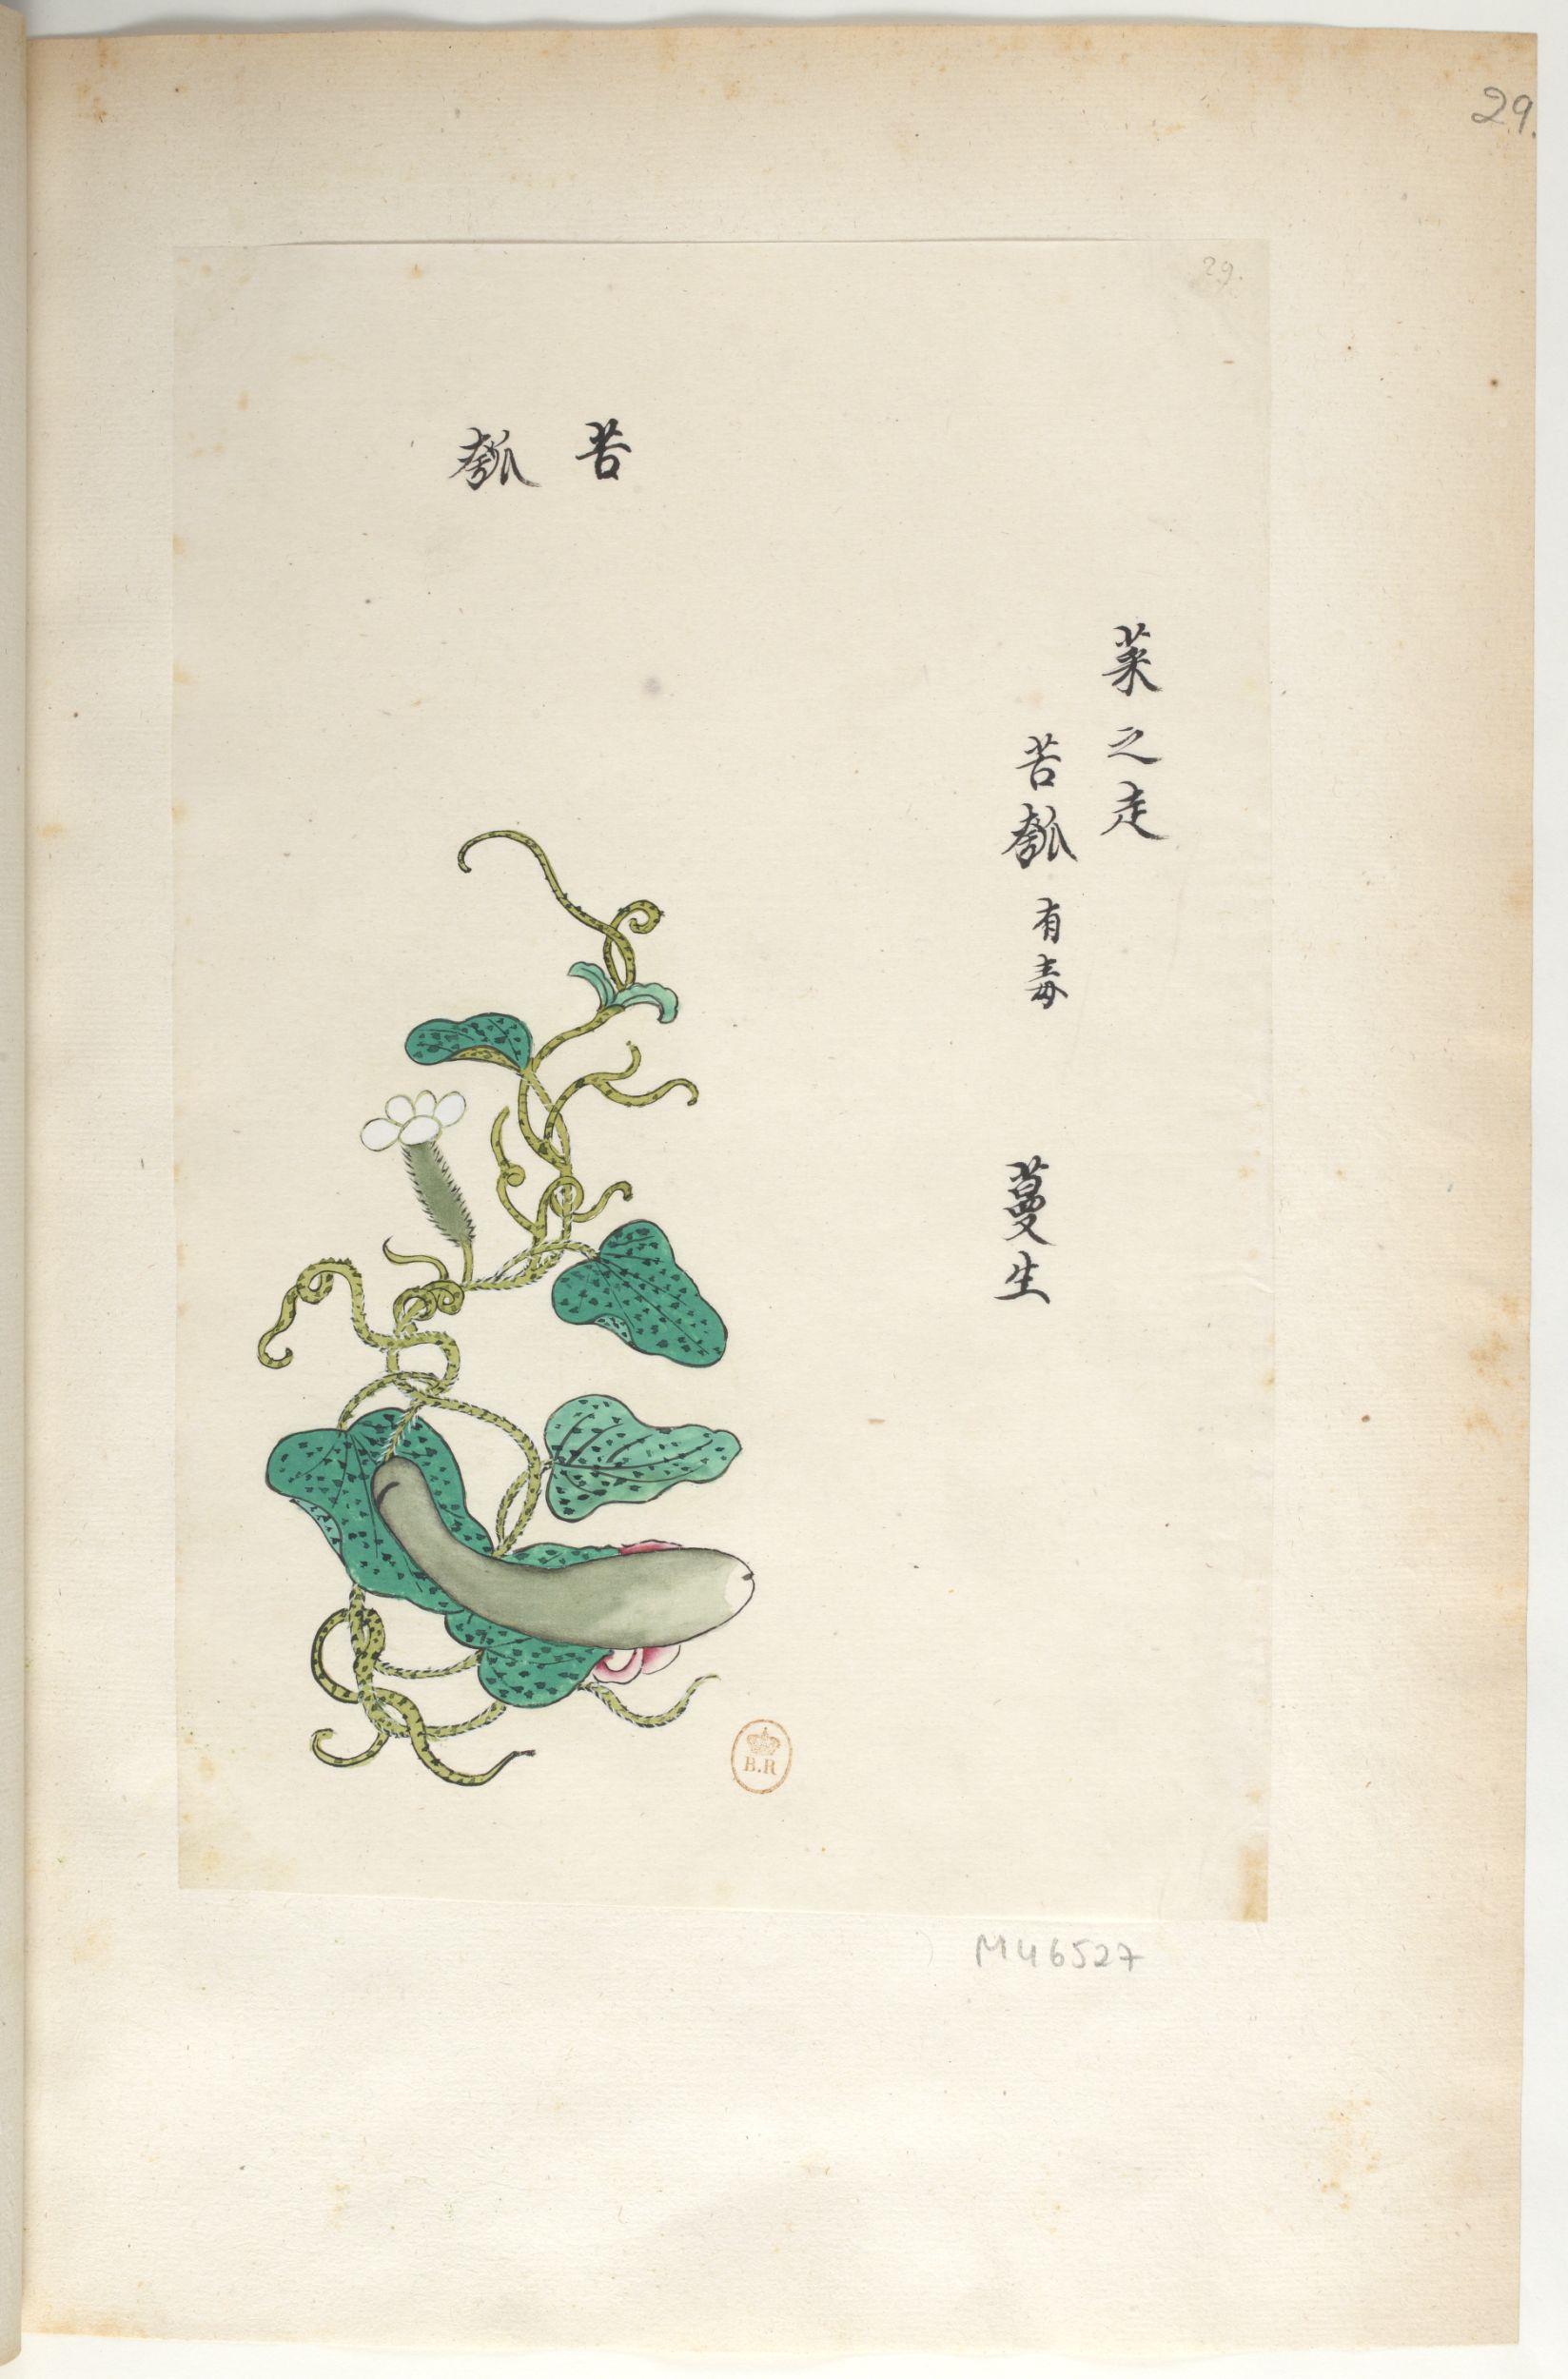 29.
29.
苦瓠
菜之走
苦瓠 有毒
蔓生
B.R
M46527